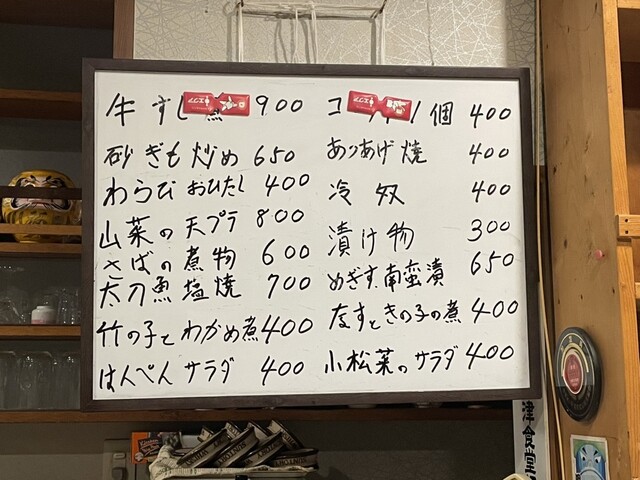 牛すじ 900
砂ぎも炒め 650
わらびおひたし 400
山菜の天プラ 800
さばの煮物 600
太刀魚塩焼 700
竹の子とわかめ煮 400
はんぺんサラダ 400
コ 1個 400
あつあげ焼 400
冷奴 400
漬け物 300
めぎす南蛮漬 650
なすときの子の煮 400
小松菜のサラダ 400
津食堂